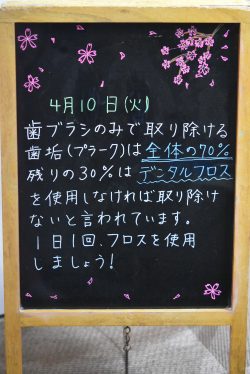 4月10日(火)
歯ブラシのみで取り除ける
歯垢(プラーク)は全体の70%
残りの30%はデンタルフロス
を使用しなければ取り除け
ないと言われています。
1日1回、フロスを使用
しましょう!